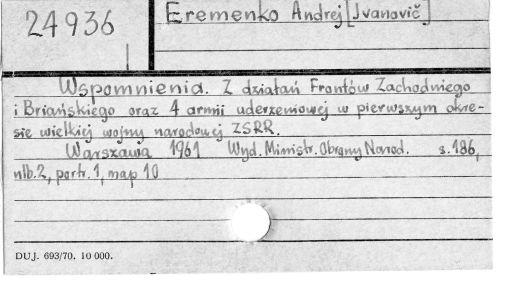 24936
Eremenko Andrej [Ivanovič]
Wspomnienia. Z działań Frontów Zachodniego
i Briańskiego oraz 4 armii uderzeniowej w pierwszym okre-
sie wielkiej wojny narodowej ZSRR.
Warszawa 1961 Wyd. Ministr. Obrony Narod. s. 186,
nlb. 2, portr. 1, map 10
DUJ. 693/70. 10 000.